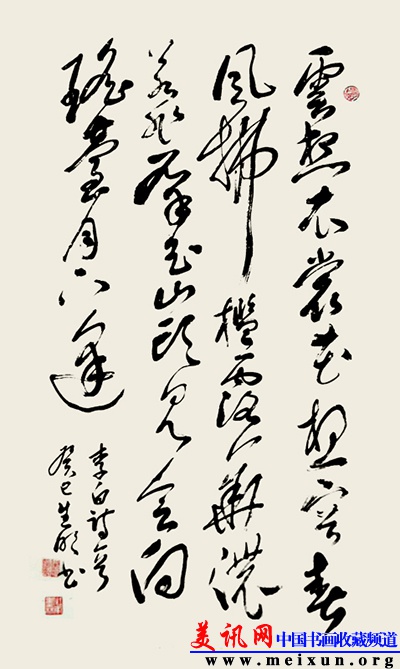 雲想衣裳花想容春
風拂檻露華濃
若非羣玉山頭見會向
瑤臺月下逢
李白詩
癸巳生書
美讯网 中国书画收藏频道
www.meixun.org